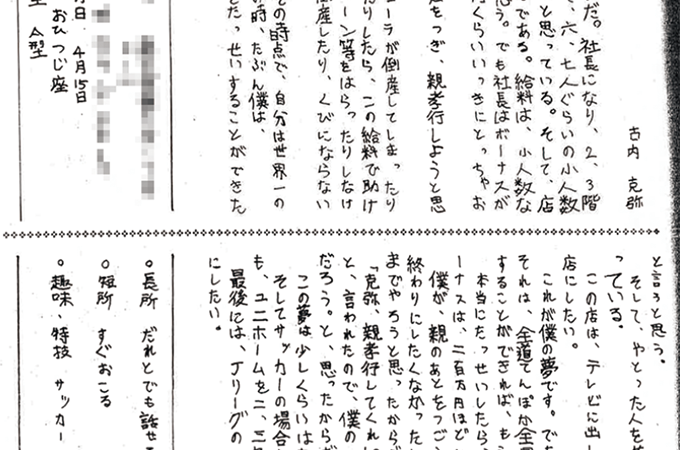 古内 克弥
だ。社長になり、2、3階
、六、七人ぐらいの小人数
と思っている。そして、店
である。給料は、小人数な
思う。でも社長はボーナスが
くらいいっきにとっちゃお
をつぎ、親孝行しようと思
ーラが倒産してしまったり
りしたら、この給料で助け
ーン等をはらったりしなけ
産したり、くびにならない
の時点で、自分は世界一の
の時、たぶん僕は、
たっせいすることができた
日 4月15日
おひつじ座
型 A型
と言うと思う。
そして、やとった人を
っている。
この店は、テレビに出し
店にしたい。
これが僕の夢です。で
それは、全道てんぽか全
することができれば、も
本当にたっせいしたら、
ーナスは、二百万円ほど
僕が、親のあとをつご
終わりにしたくなかった
までやろうと思ったから
「克弥、親孝行してくれ
と、言われたので、僕の
だろう。と、思ったから
この夢は少しくらいは
そしてサッカーの場合
も、ユニホームを二、三
最後には、Jリーグの
にしたい。
○長所 だれとでも話せ
○短所 すぐおこる
○趣味・特技 サッカー